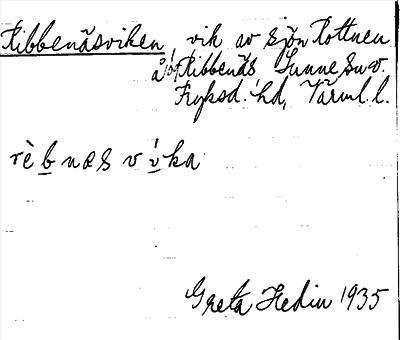 Ribbenäsviken, vik av sjön Rottnen
å Ribbenäs, Sunne sn v.
Fryksd. hd, Värml. l.
rèbnæsvika
Greta Hedin 1935